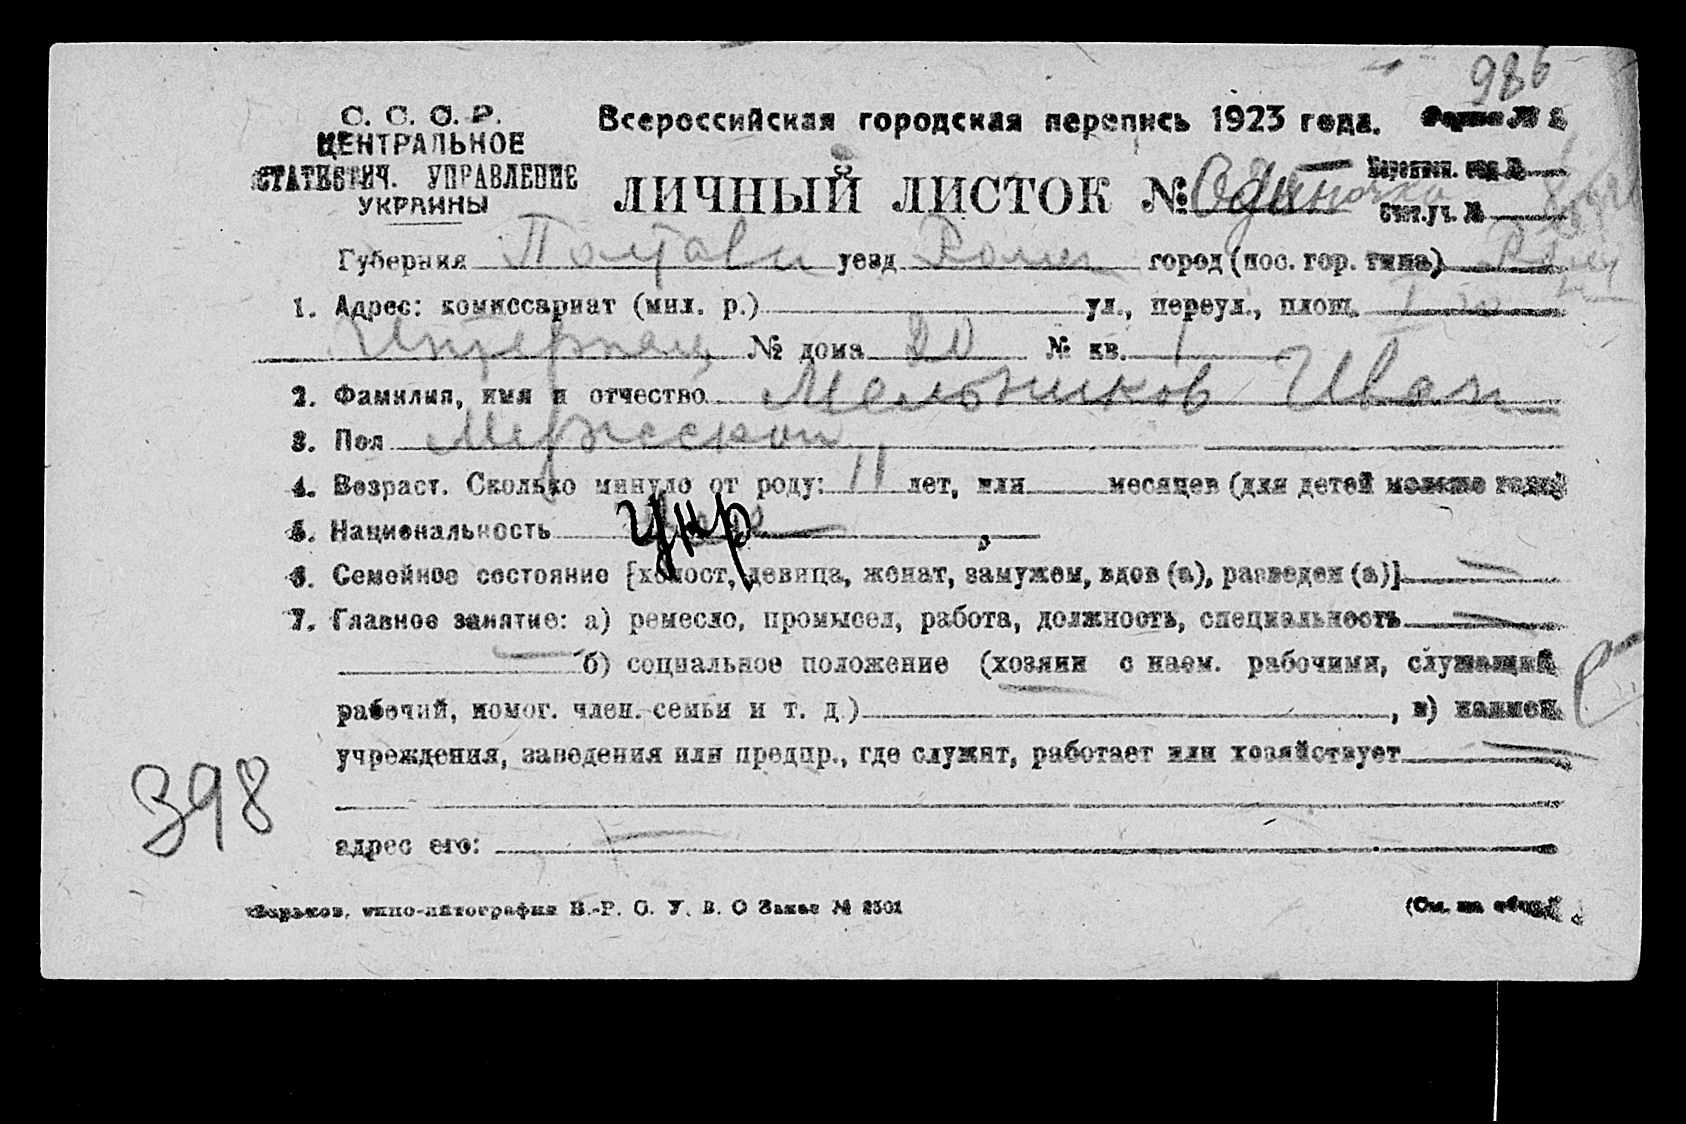 986
С. С. С. Р.
ЦЕНТРАЛЬНОЕ
СТАТИСТИЧ. УПРАВЛЕНИЕ
УКРАИНЫ
Всероссийская городская перепись 1923 года. Форма № 2
ЛИЧНЫЙ ЛИСТОК № Одиночка
Переписн. отд. №
Счет. уч. №
Губерния Полтав уезд Ромен город (пос. гор. типа) Ромен
1. Адрес: комиссариат (мил. р.) ул., переул., площ. 1 го
Интернац № дома 20 № кв. 1
2. Фамилия, имя и отчество Мельников Иван
3. Пол Мужской
4. Возраст. Сколько минуло от роду: 11 лет, или месяцев (для детей моложе года)
5. Национальность укр
6. Семейное состояние [холост, девица, женат, замужем, вдов (а), разведен (а)]
7. Главное занятие: а) ремесло, промысел, работа, должность, специальность
б) социальное положение (хозяин с наем. рабочими, служащий,
рабочий, помог. член. семьи и т. д.) , в) наимен.
учреждения, заведения или предпр., где служит, работает или хозяйствует
398
адрес его:
Харьков, типо-литография В.-Р. С. У. В. О Заказ № 2501
(См. на обор.)